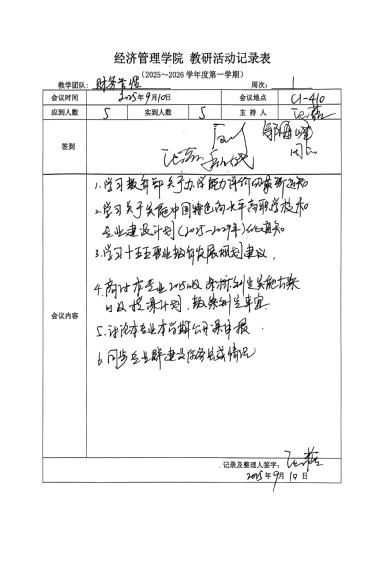 经济管理学院 教研活动记录表
（2025～2026 学年度第一学期）
教学团队：财务管理 周次：1
会议时间 2025年9月10日 会议地点 C1-410
应到人数 5 实到人数 5 主持人
签到
会议内容
1.学习教育部关于办学能力评价的最新通知
2.学习关于实施中国特色高水平高职学校和
专业建设计划(2025-2029年)的通知
3.学习十五五职业教育发展规划建议,
4.商讨本专业2025级
以及授课计划、教案制定事宜
5.讨论本专业本学期公开课申报.
6.同步专业群建设任务
记录及整理人签字：
2025年9月10日